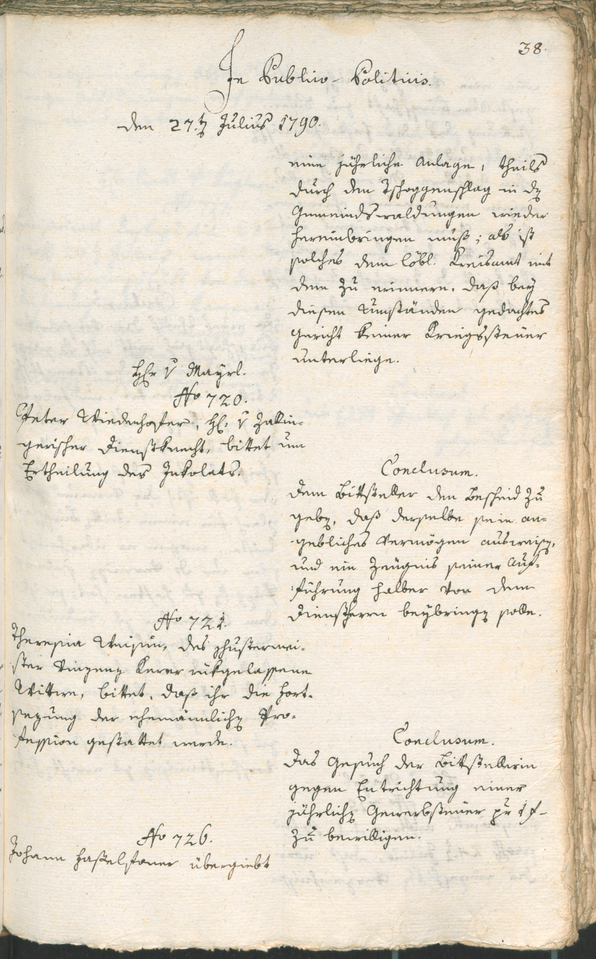 38.
In Publico-Politicis.
den 27.t Julius 1790.
eine jährliche Anlage, theils
durch den Tschoggenschlag in den
Gemeindswaldungen wieder
hereinbringen muß; als ist
solches dem löbl. Kreisamt mit
dem zu erinnern, daß bey
diesen Umständen gedachtes
Gericht keiner Kriegssteuer
unterliege.
Hr. v Mayrl.
No 720.
Peter Wiedenhofer, H. v Zallin-
gerischer Dienstknecht, bittet um
Ertheilung des Inkolats.
Conclusum.
Dem Bittsteller den Bescheid zu
geben, daß derselbe sein an-
gebliches Vermögen ausweisen,
und ein Zeugniß seiner Auf-
führung halber von dem
Dienstherrn beybringen solle.
No 721.
Theresia, des Schustermei-
ster Vinzenz Kerer rükgelassene
Wittwe, bittet, daß ihr die Fort-
sezung der ehemännlichen Pro-
fession gestattet werde.
Conclusum.
Das Gesuch der Bittstellerin
gegen Entrichtung einer
jährlichen Gewerbsteuer pr 1 f
zu bewilligen.
No 726.
Johann Haselstoner übergiebt